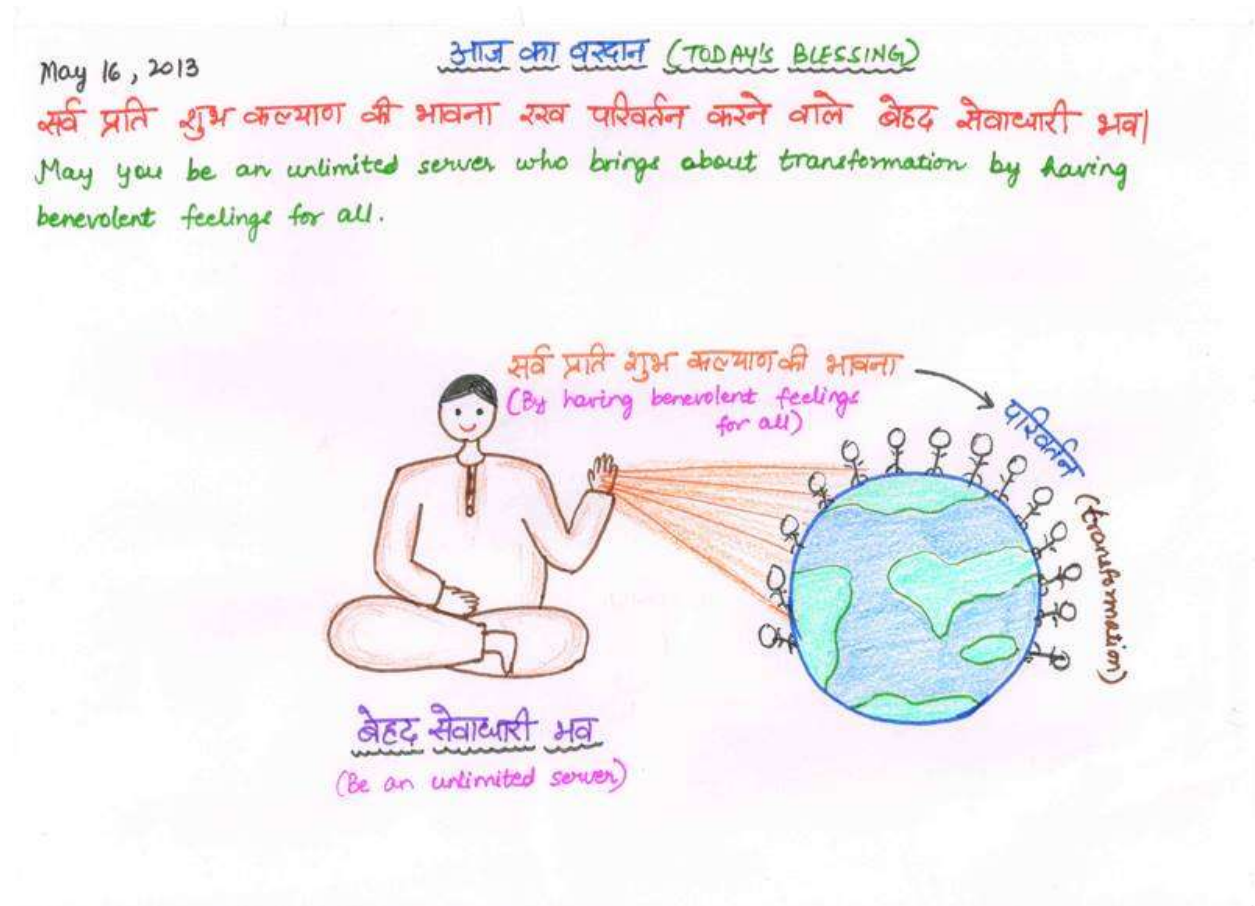 आज का वरदान (TODAY'S BLESSING)
May 16, 2013
सर्व प्रति शुभ कल्याण की भावना रख परिवर्तन करने वाले बेहद सेवाधारी भव|
May you be an unlimited server who brings about transformation by having
benevolent feelings for all.
सर्व प्रति शुभ कल्याण की भावना
(By having benevolent feelings
for all)
परिवर्तन
(transformation)
बेहद सेवाधारी भव
(Be an unlimited server)